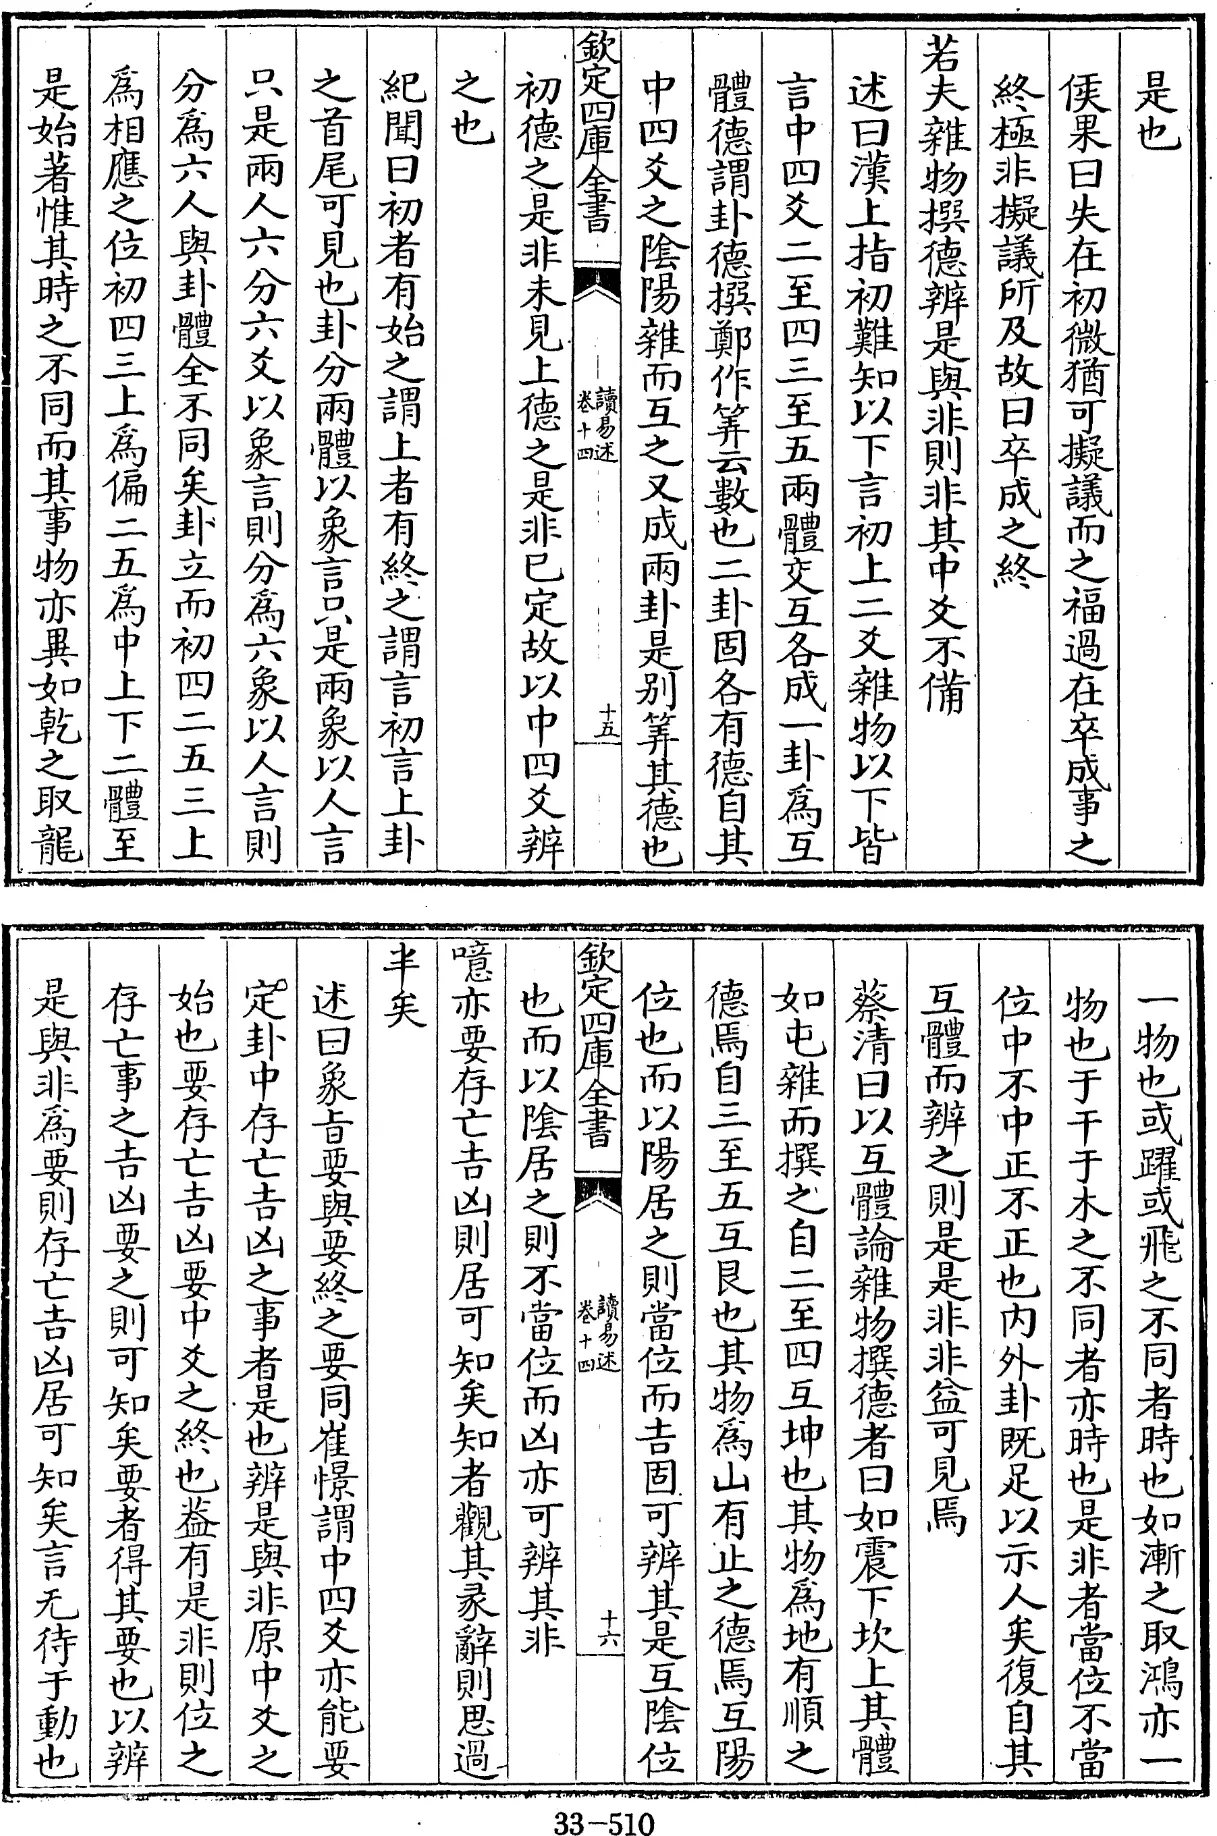 是也
侯果曰失在初微猶可擬議而之福過在卒成事之
終極非擬議所及故曰卒成之終
若夫雜物撰德辨是與非則非其中爻不備
述曰漢上指初難知以下言初上二爻雜物以下皆
言中四爻二至四三至五兩體交互各成一卦爲互
體德謂卦德撰鄭作筭云數也二卦固各有德自其
中四爻之陰陽雜而互之又成兩卦是别筭其德也
欽定四庫全書
讀易述
卷十四
十五
初德之是非未見上德之是非已定故以中四爻辨
之也
紀聞曰初者有始之謂上者有終之謂言初言上卦
之首尾可見也卦分兩體以象言只是兩象以人言
只是兩人六分六爻以象言則分爲六象以人言則
分爲六人與卦體全不同矣卦立而初四二五三上
爲相應之位初四三上爲偏二五爲中上下二體至
是始著惟其時之不同而其事物亦異如乾之取龍
一物也或躍或飛之不同者時也如漸之取鴻亦一
物也于干于木之不同者亦時也是非者當位不當
位中不中正不正也内外卦既足以示人矣復自其
互體而辨之則是是非非益可見焉
蔡清曰以互體論雜物撰德者曰如震下坎上其體
如屯雜而撰之自二至四互坤也其物爲地有順之
德焉自三至五互艮也其物爲山有止之德焉互陽
位也而以陽居之則當位而吉固可辨其是互陰位
欽定四庫全書
讀易述
卷十四
十六
也而以陰居之則不當位而凶亦可辨其非
噫亦要存亡吉凶則居可知矣知者觀其彖辭則思過
半矣
述曰象旨要與要終之要同崔憬謂中四爻亦能要
定卦中存亡吉凶之事者是也辨是與非原中爻之
始也要存亡吉凶要中爻之終也葢有是非則位之
存亡事之吉凶要之則可知矣要者得其要也以辨
是與非爲要則存亡吉凶居可知矣言无待于動也
33-510